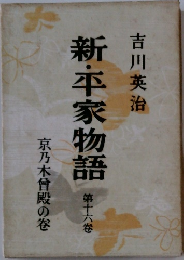 吉川英治
新・平家物語
第十六卷
京乃木曾殿の卷